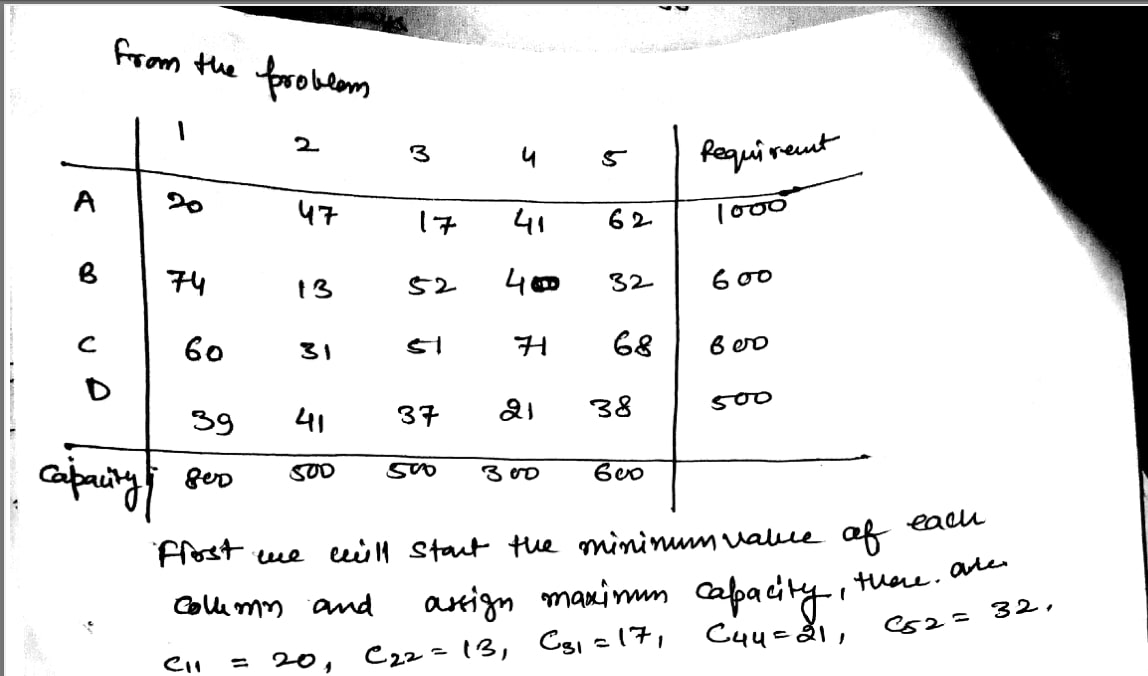 from the problem
1 2 3 4 5 Requirement
A 20 47 17 41 62 1000
B 74 13 52 40 32 600
C 60 31 51 71 68 600
D 39 41 37 21 38 500
Capacity 800 500 500 300 600
First we will start the minimum value of each
column and assign maximum capacity, there are
C11 = 20, C22 = 13, C31 = 17, C44 = 21, C52 = 32.